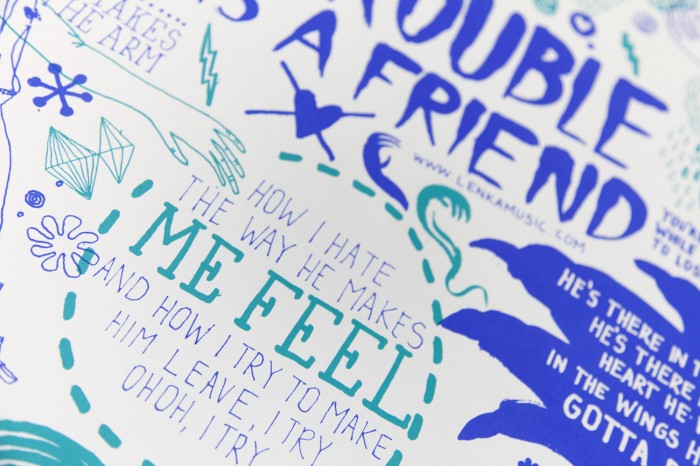 MAKES
THE ARM
IS
TROUBLE
A FRIEND
WWW.LENKAMUSIC.COM
HOW I HATE
THE WAY HE MAKES
ME FEEL
AND HOW I TRY TO MAKE
HIM LEAVE, I TRY
OHOH, I TRY
WHILE
TO
HE'S THERE IN
HE'S THERE
HEART HE'S
IN THE WINGS
GOTTA